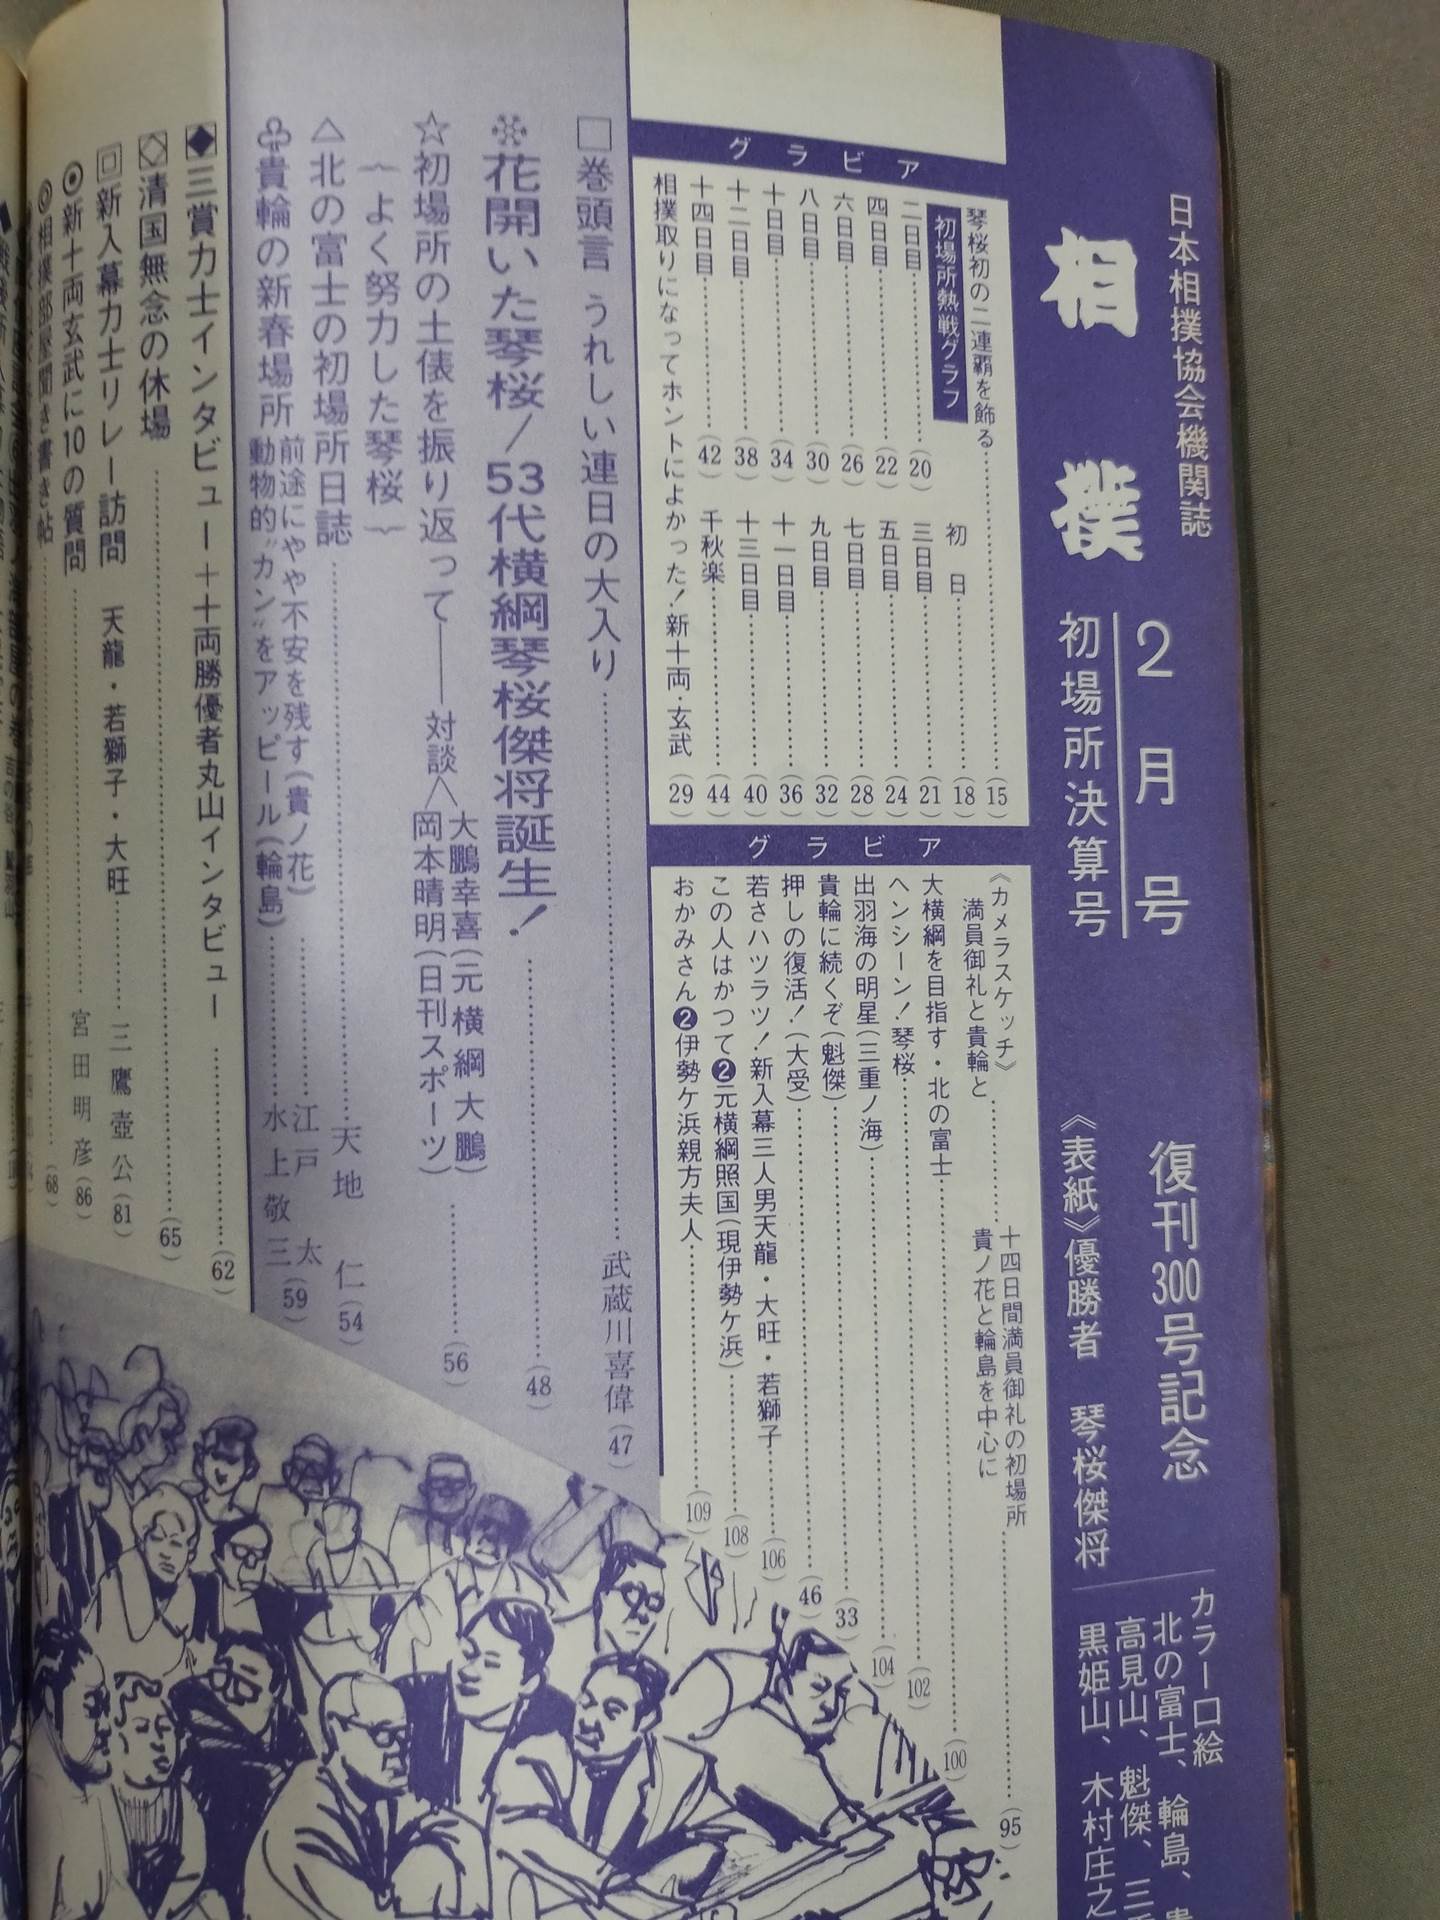 日本相撲協会機関誌
相撲
2月号
初場所決算号
復刊300号記念
《表紙》優勝者 琴桜傑将
カラー口絵
北の富士、輪島、
高見山、魁傑、三
黒姫山、木村庄之
グラビア
琴桜初の二連覇を飾る………(15)
初場所熱戦グラフ
初日………(18)
二日目………(20)
三日目………(21)
四日目………(22)
五日目………(24)
六日目………(26)
七日目………(28)
八日目………(30)
九日目………(32)
十日目………(34)
十一日目………(36)
十二日目………(38)
十三日目………(40)
十四日目………(42)
千秋楽………(44)
相撲取りになってホントによかった!新十両・玄武 (29)
グラビア
《カメラスケッチ》
満員御礼と貴輪と………十四日間満員御礼の初場所
貴ノ花と輪島を中心に………(95)
大横綱を目指す・北の富士………(100)
ヘンシーン!琴桜………(102)
出羽海の明星(三重ノ海)………(104)
貴輪に続くぞ(魁傑)………(33)
押しの復活!(大受)………(46)
若さハツラツ!新入幕三人男天龍・大旺・若獅子………(106)
この人はかつて❷元横綱照国(現伊勢ケ浜)………(108)
おかみさん❷伊勢ケ浜親方夫人………(109)
□巻頭言 うれしい連日の大入り………武蔵川喜偉(47)
※花開いた琴桜/53代横綱琴桜傑将誕生!………(48)
☆初場所の土俵を振り返って――対談〈大鵬幸喜(元横綱大鵬)
岡本晴明(日刊スポーツ)………(56)
~よく努力した琴桜~
△北の富士の初場所日誌………天地 仁(54)
♧貴輪の新春場所 前途にやや不安を残す(貴ノ花)………江戸 太
動物的"カン"をアッピール(輪島)………水上敬三(59)
◆三賞力士インタビュー十十両勝優者丸山インタビュー………(62)
◇清国無念の休場………(65)
回新入幕力士リレー訪問 天龍・若獅子・大旺………三鷹壺公(81)
◉新十両玄武に10の質問………宮田明彦(86)
◎相撲部屋聞き書き帖………(68)